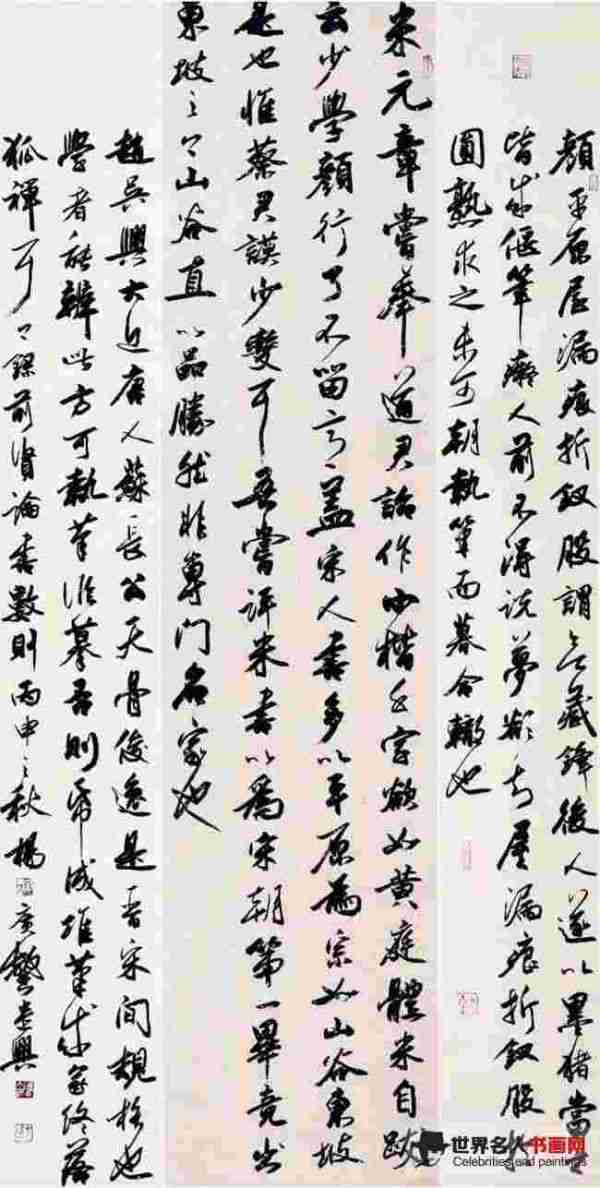 顏平原屋漏痕折釵股謂欲藏鋒後人遂以墨猪當之
皆成偃筆癡人前不得說夢欲知屋漏痕折釵股於
圓熟求之未可朝執筆而暮合轍也
米元章嘗奉道君詔作小楷千字欲如黃庭體米自跋
云少學顏行了不留意蓋宋人書多以平原為宗如山谷東坡
是也惟蔡君謨少變耳吾嘗評米書以為宋朝第一畢竟出
東坡之上山谷直以品勝然非專門名家也
趙吳興大近唐人蘇長公天骨俊逸是晉宋間規格也
學者能辨此方可執筆臨摹否則紙成堆筆成冢終落
狐禪耳上錄前賢論書數則丙申之秋楊廣馨
世界名人书画网
Celebrities and paintings